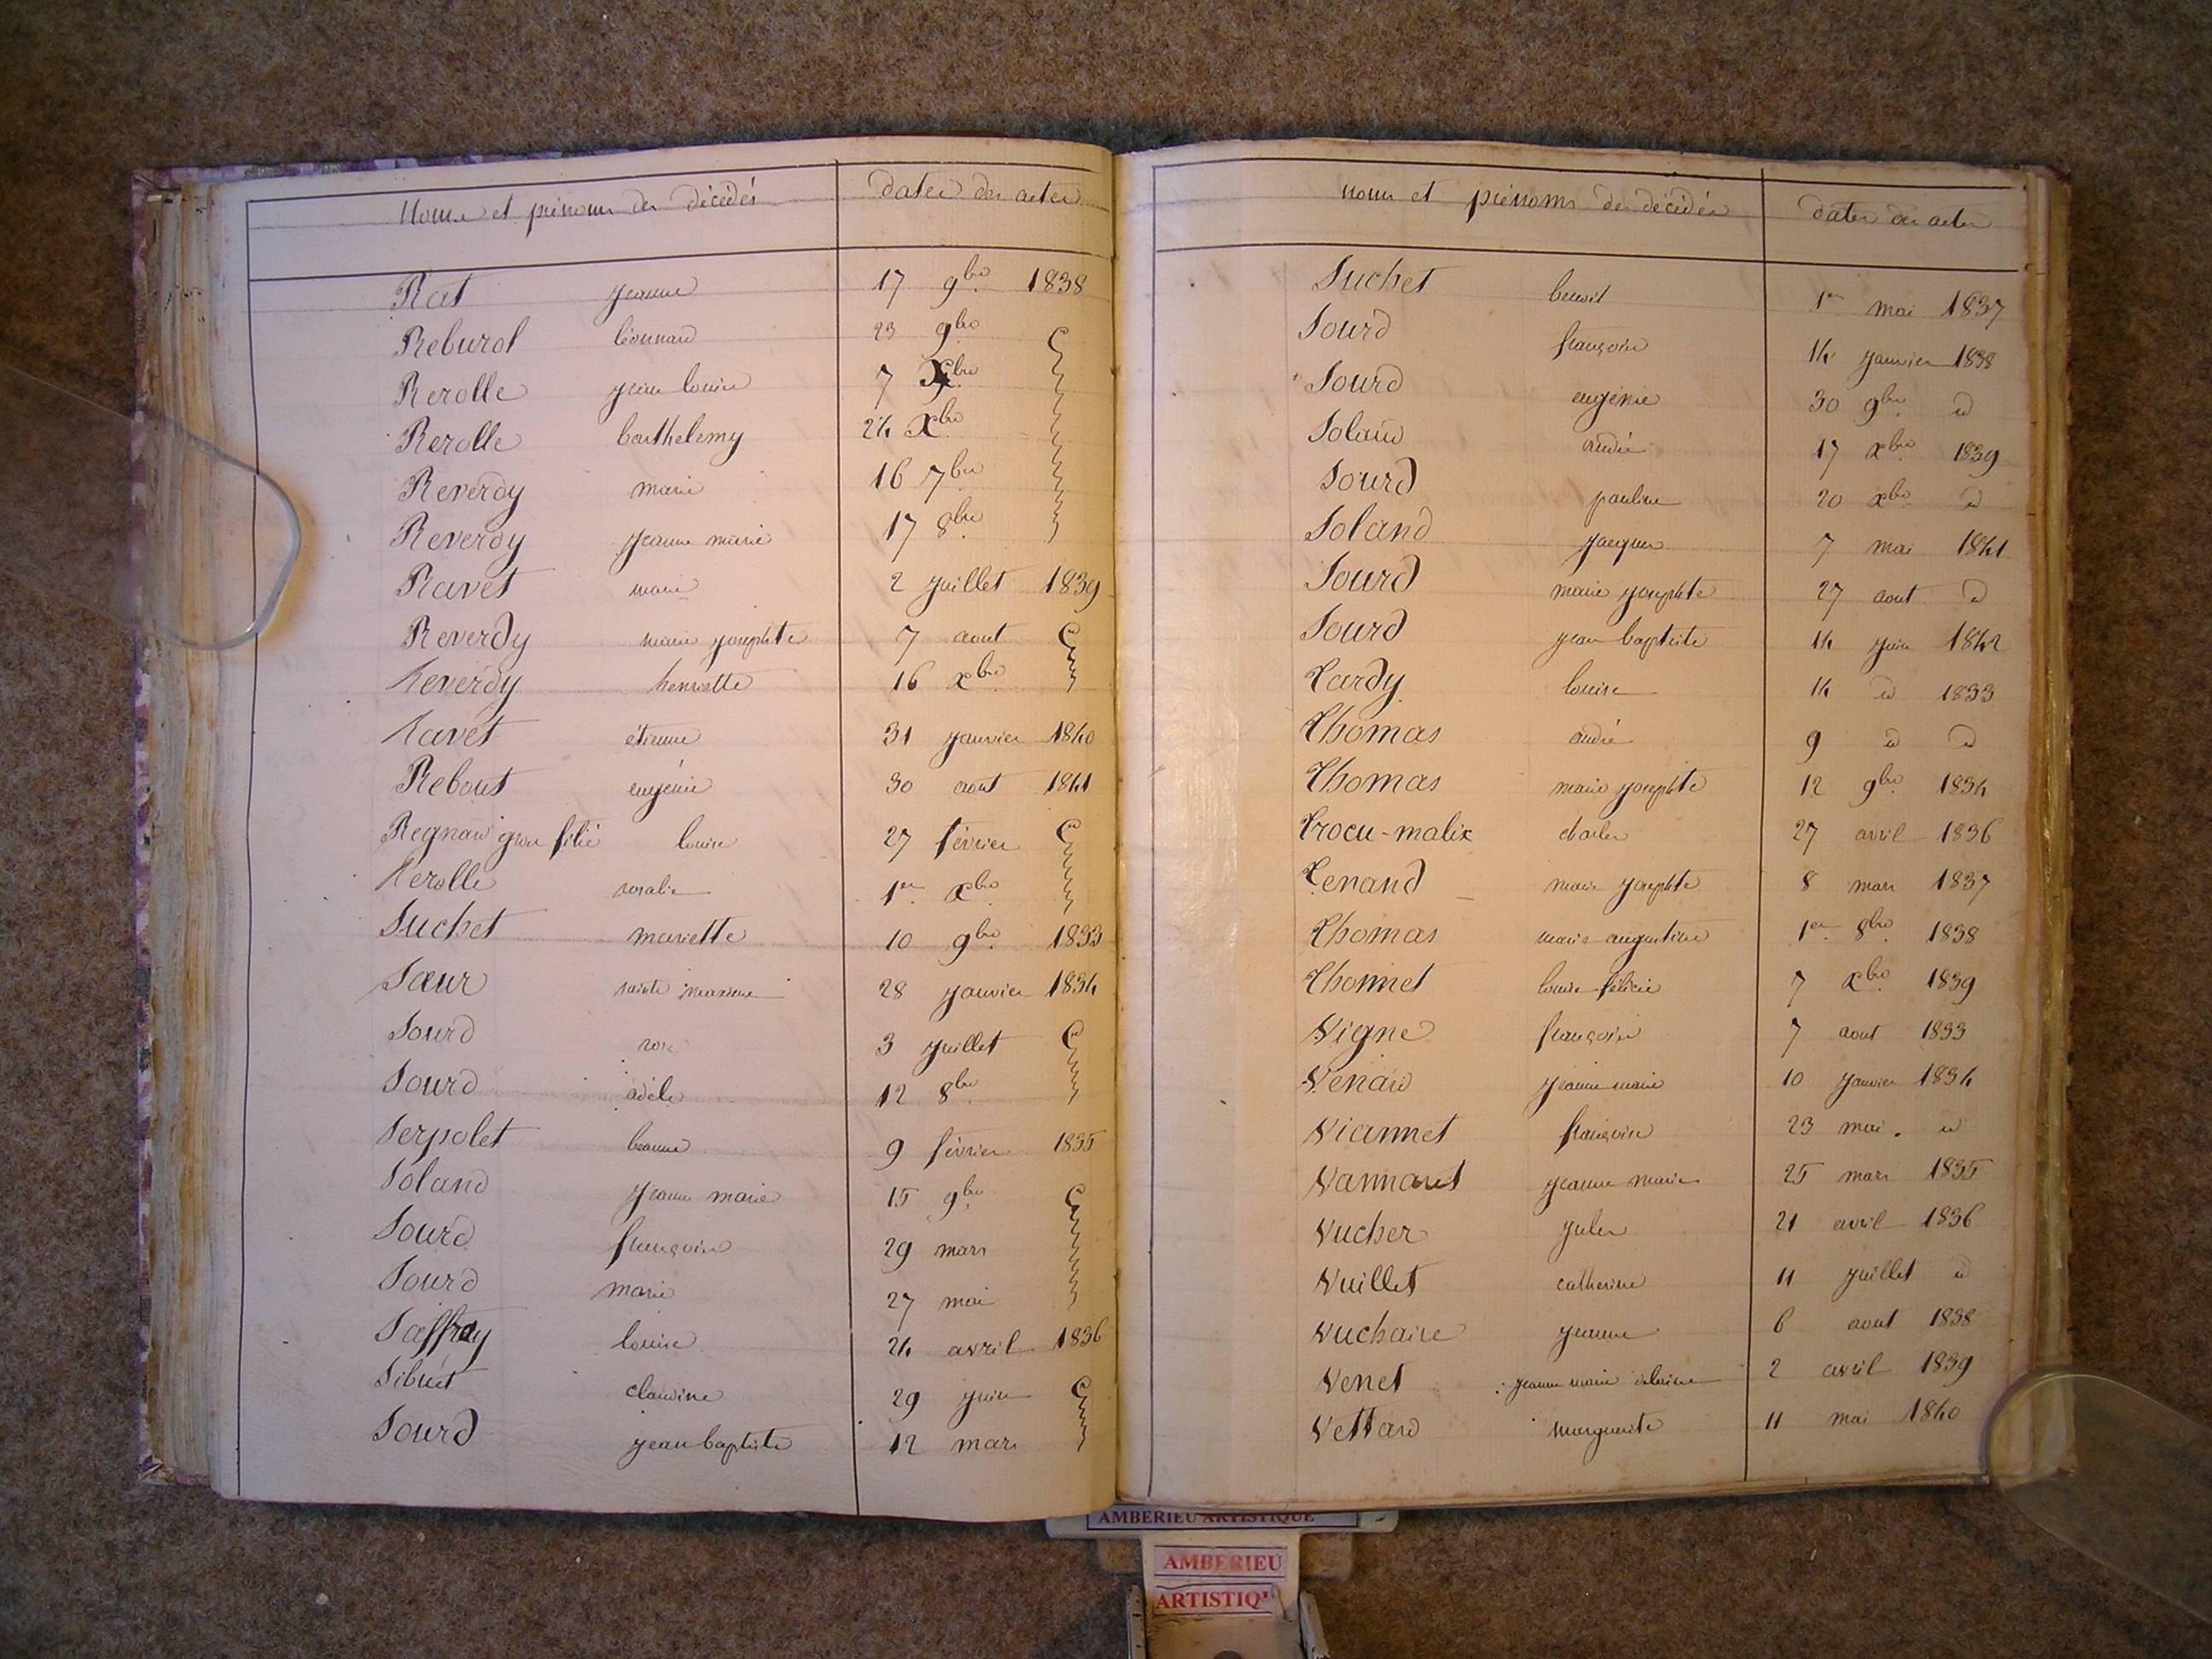 Noms et prénoms des décédés dates des actes
Rat jeanne 17 9bre 1838
Reburol léonnard 23 9bre
Rerolle jean louis 7 Xbre
Rerolle barthelemy 24 Xbre
Reverdy marie 16 7bre
Reverdy jeanne marie 17 8bre
Ravet marie 2 juillet 1839
Reverdy marie josephte 7 aout
Reverdy henriette 16 xbre
Ravet étienne 31 janvier 1840
Rebout eugénie 30 aout 1841
Regnaud louise 27 février
Rerolle rosalie 1er xbre
Suchet mariette 10 9bre 1833
Sœur sainte 28 janvier 1834
Sourd rose 3 juillet
Sourd adèle 12 8bre
Serpolet 9 février 1835
Soland jeanne marie 15 9bre
Sourd françoise 29 mars
Sourd marie 27 mai
Saffray louise 24 avril 1836
Sibuet claudine 29 juin
Sourd jean baptiste 12 mars
noms et prénoms des décédés dates des actes
Suchet benoit 1er mai 1837
Sourd françoise 14 janvier 1838
Sourd eugénie 30 9bre d
Soland andré 17 xbre 1839
Sourd pauline 20 xbre d
Soland jacques 7 mai 1841
Sourd marie josephte 27 aout d
Sourd jean baptiste 14 juin 1842
Tardy louise 14 d 1833
Thomas andré 9 d d
Thomas marie josephte 12 9bre 1834
Trocu-malix charles 27 avril 1836
Tenand marie josephte 8 mars 1837
Thomas marie augustine 1er 8bre 1838
Thomet louise félicie 7 xbre 1839
Vigne françoise 7 aout 1833
Venard jeanne marie 10 janvier 1834
Viannet françoise 23 mai. d
Vannaret jeanne marie 25 mars 1835
Vucher jules 21 avril 1836
Vuillet catherine 11 juillet d
Vuchaire jeanne 6 aout 1838
Venet jeanne marie 2 avril 1839
Vettard marguerite 11 mai 1840
AMBERIEU ARTISTIQUE
AMBERIEU
ARTISTIQU